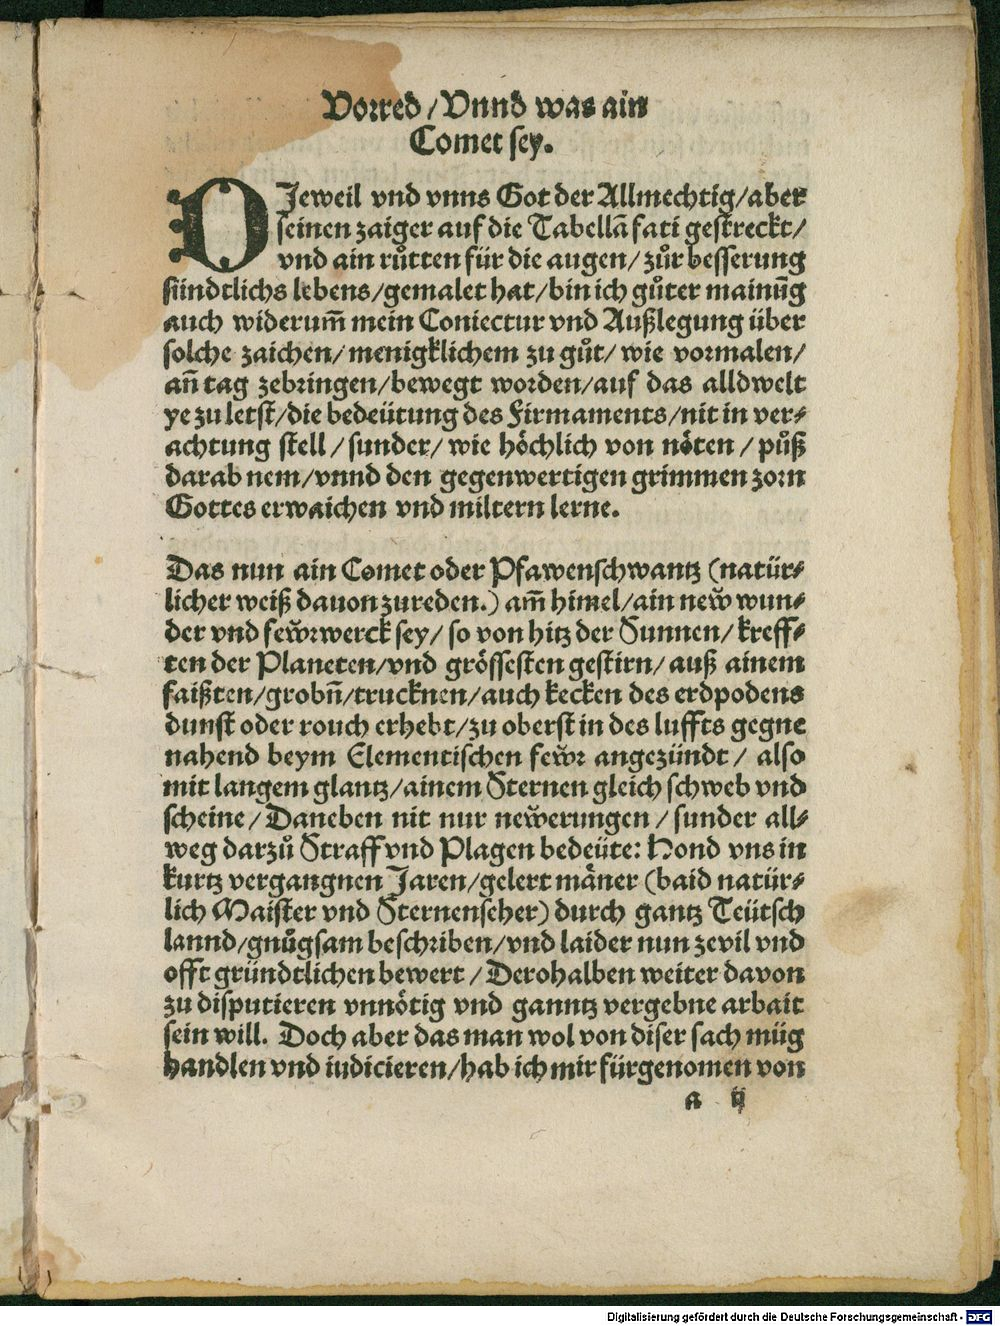 Vorred / Vnnd was ain
Comet sey.
DJeweil vnd vnns Got der Allmechtig/aber
seinen zaiger auf die Tabellã fati gestreckt/
vnd ain růtten für die augen/ zůr besserung
sündtlichs lebens/gemalet hat/bin ich gůter mainũg
auch widerum̃ mein Coniectur vnd Außlegung über
solche zaichen/ menigklichem zu gůt/ wie vormalen/
an̄ tag zebringen/bewegt worden/auf das alldwelt
ye zu letst/die bedeütung des Firmaments/nit in ver⸗
achtung stell / sunder/ wie hoͤchlich von noͤten / půß
darab nem/vnnd den gegenwertigen grimmen zorn
Gottes erwaichen vnd miltern lerne.
Das nun ain Comet oder Pfawenschwantz (natür⸗
licher weiß dauon zureden.) am̃ himel/ain new̌ wun⸗
der vnd few̌rwerck sey/ so von hitz der Sunnen/ kreff⸗
ten der Planeten/vnd groͤssesten gestirn/ auß ainem
faißten/grobñ/trucknen/auch kecken des erdpodens
dunst oder rouch erhebt/zu oberst in des luffts gegne
nahend beym Elementischen few̌r angezündt / also
mit langem glantz/ainem Sternen gleich schweb vnd
scheine / Daneben nit nur new̌erungen / sunder all⸗
weg darzů Straff vnd Plagen bedeüte: Hond vns in
kurtz vergangnen Jaren/gelert maͤner (baid natür⸗
lich Maister vnd Sternenseher) durch gantz Teütsch
lannd/gnůgsam beschriben/vnd laider nun zevil vnd
offt gründtlichen bewert / Derohalben weiter davon
zu disputieren vnnoͤtig vnd ganntz vergebne arbait
sein will. Doch aber das man wol von diser sach müg
handlen vnd iudicieren/hab ich mir fürgenomen von
a ij
Digitalisierung gefördert durch die Deutsche Forschungsgemeinschaft - DFG